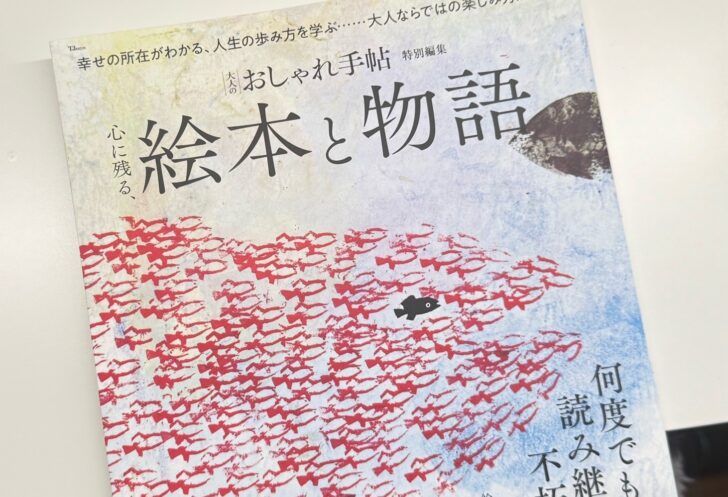 幸せの所在がわかる、人生の歩み方を学ぶ……大人ならではの楽しみ方
大人の おしゃれ手帖 特別編集
心に残る、
絵本と物語
何度でも
読み継
不朽